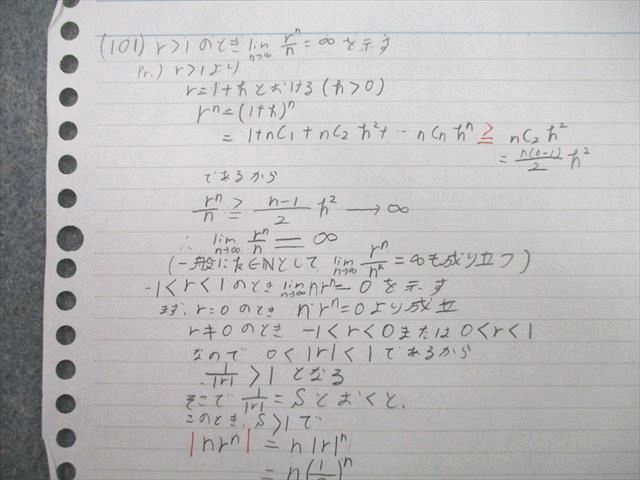 (101) r>1のとき lim n→∞ rⁿ/n = ∞ を示す
Pr.) r>1より
r=1+hとおける(h>0)
rⁿ=(1+h)ⁿ
= 1+nC₁+nC₂h²+…nCnhⁿ ≧ nC₂h²
= n(n-1)/2 h²
であるから
rⁿ/n ≧ n-1/2 h² → ∞
∴ lim n→∞ rⁿ/n = ∞
(一般にk∈Nとして lim n→∞ rⁿ/nᵏ = ∞も成り立つ)
-1<r<1のとき lim n→∞ nrⁿ=0を示す
まず、r=0のとき n・rⁿ=0より成立
r≠0のとき -1<r<0または0<r<1
なので 0<|r|<1であるから
1/|r| >1 となる
そこで 1/|r| = Sとおくと、
このとき、S>1で
|nrⁿ| = n|r|ⁿ
= n(1/)ⁿ